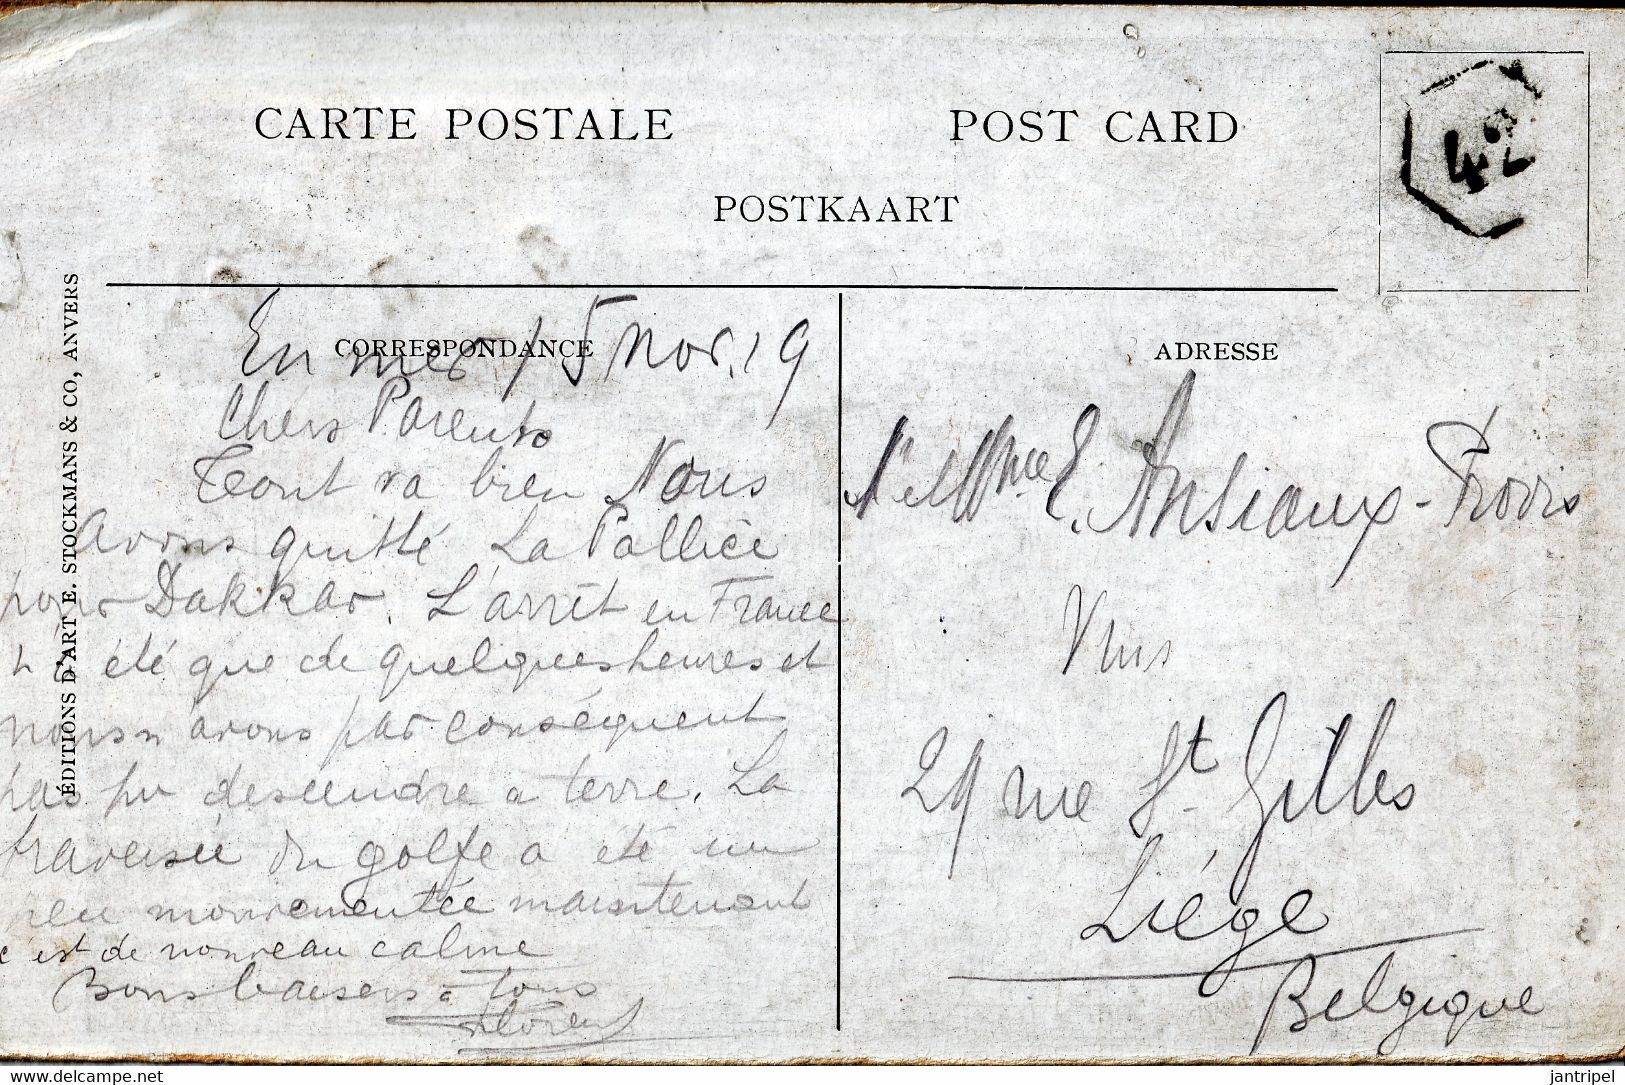 CARTE POSTALE
POST CARD
POSTKAART
42
ÉDITIONS D'ART E. STOCKMANS & CO, ANVERS
CORRESPONDANCE
En mer 15 nov. 19
Chers Parents
Tout va bien Nous
avons quitté La Pallice
pour Dakkar. L'arrêt en France
n'a été que de quelques heures et
nous n'avons par conséquent
pas pu descendre à terre. La
traversée du golfe a été un
peu mouvementée maintenant
c'est de nouveau calme
Bons baisers à tous
Florent
ADRESSE
Mr et Mme E. Ansiaux-
Vins
29 rue St. Gilles
Liége
Belgique
www.delcampe.net
jantripel